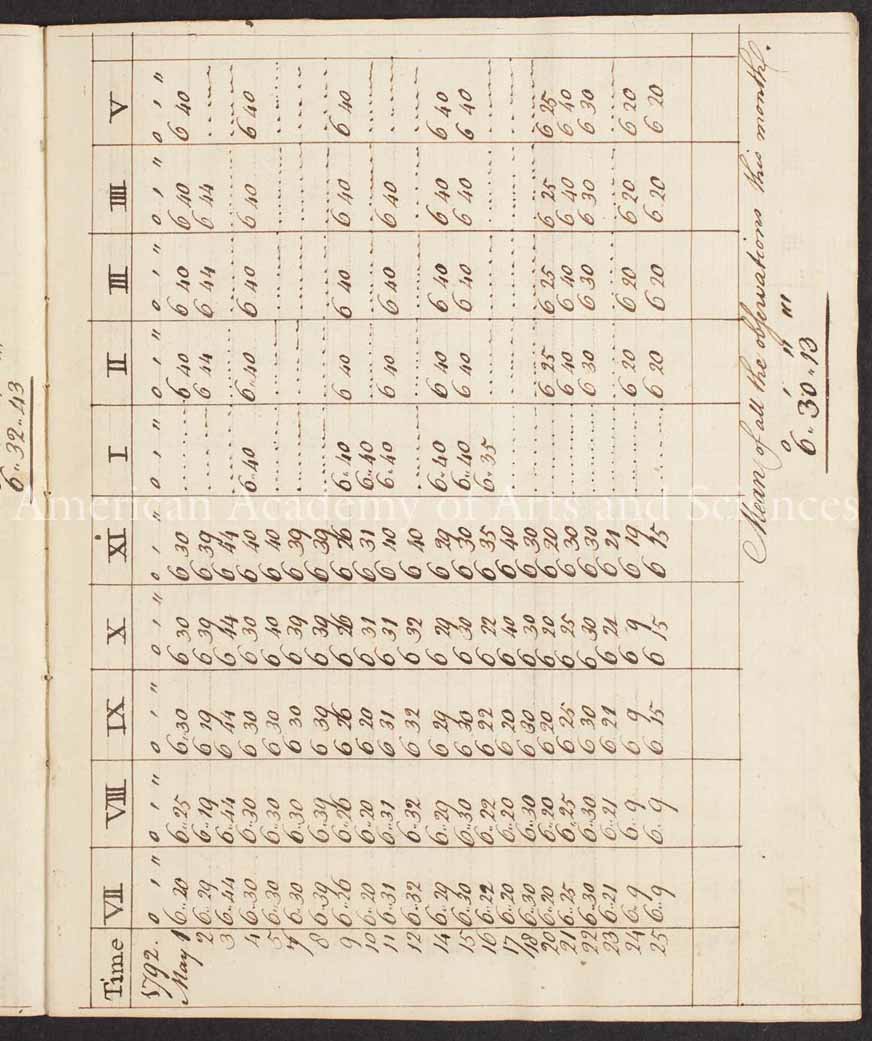 6„32„43
Time VII VIII IX X XI I II III IIII V
1792. 0 ′ ″ 0 ′ ″ 0 ′ ″ 0 ′ ″ 0 ′ ″ 0 ′ ″ 0 ′ ″ 0 ′ ″ 0 ′ ″ 0 ′ ″
May 1 6„20 6„25 6„30 6 30 6 30 ...... 6 40 6 40 6 40 6 40
2 6„29 6„19 6 19 6 39 6 39 ...... 6 44 6 44 6 44 ......
3 6„44 6„44 6 44 6 44 6 44 ...... ...... ...... ...... ......
4 6„30 6„30 6 30 6 30 6 40 6„40 6„40 6 40 6 40 6 40
5 6„30 6„30 6 30 6 40 6 40 ...... ...... ...... ...... ......
7 6„30 6„30 6 30 6 39 6 39 ...... ...... ...... ...... ......
8 6„39 6„39 6 39 6 39 6 39 ...... ...... ...... ...... ......
9 6„26 6„26 6 26 6 26 6 26 6„40 6 40 6 40 6 40 6 40
10 6„20 6„20 6 20 6 31 6 31 6„40 ...... ...... ...... ......
11 6„31 6„31 6 31 6 31 6 40 6„40 6 40 6 40 6 40 ......
12 6„32 6„32 6 32 6 32 6 40 ...... ...... ...... ...... ......
14 6„29 6„29 6 29 6 29 6 29 6„40 6 40 6 40 6 40 6 40
15 6„30 6„30 6 30 6 30 6 30 6„40 6 40 6 40 6 40 6 40
16 6„22 6„22 6 22 6 22 6 35 6„35 ...... ...... ...... ......
17 6„20 6„20 6 20 6 40 6 40 ...... ...... ...... ...... ......
18 6„30 6„30 6 30 6 30 6 30 ...... ...... ...... ...... ......
20 6„20 6„20 6 20 6 20 6 20 ...... 6 25 6 25 6 25 6 25
21 6„25 6„25 6 25 6 25 6 30 ...... 6 40 6 40 6 40 6 40
22 6„30 6„30 6 30 6 30 6 30 ...... 6 30 6 30 6 30 6 30
23 6„21 6„21 6 21 6 21 6 21 ...... ...... ...... ...... ......
24 6„9 6„9 6 9 6 9 6 19 ...... 6 20 6 20 6 20 6 20
25 6„9 6„9 6 15 6 15 6 15 ...... 6 20 6 20 6 20 6 20
Mean of all the observations this month.
0 ′ ″ ‴
6„30„13
American Academy of Arts and Sciences